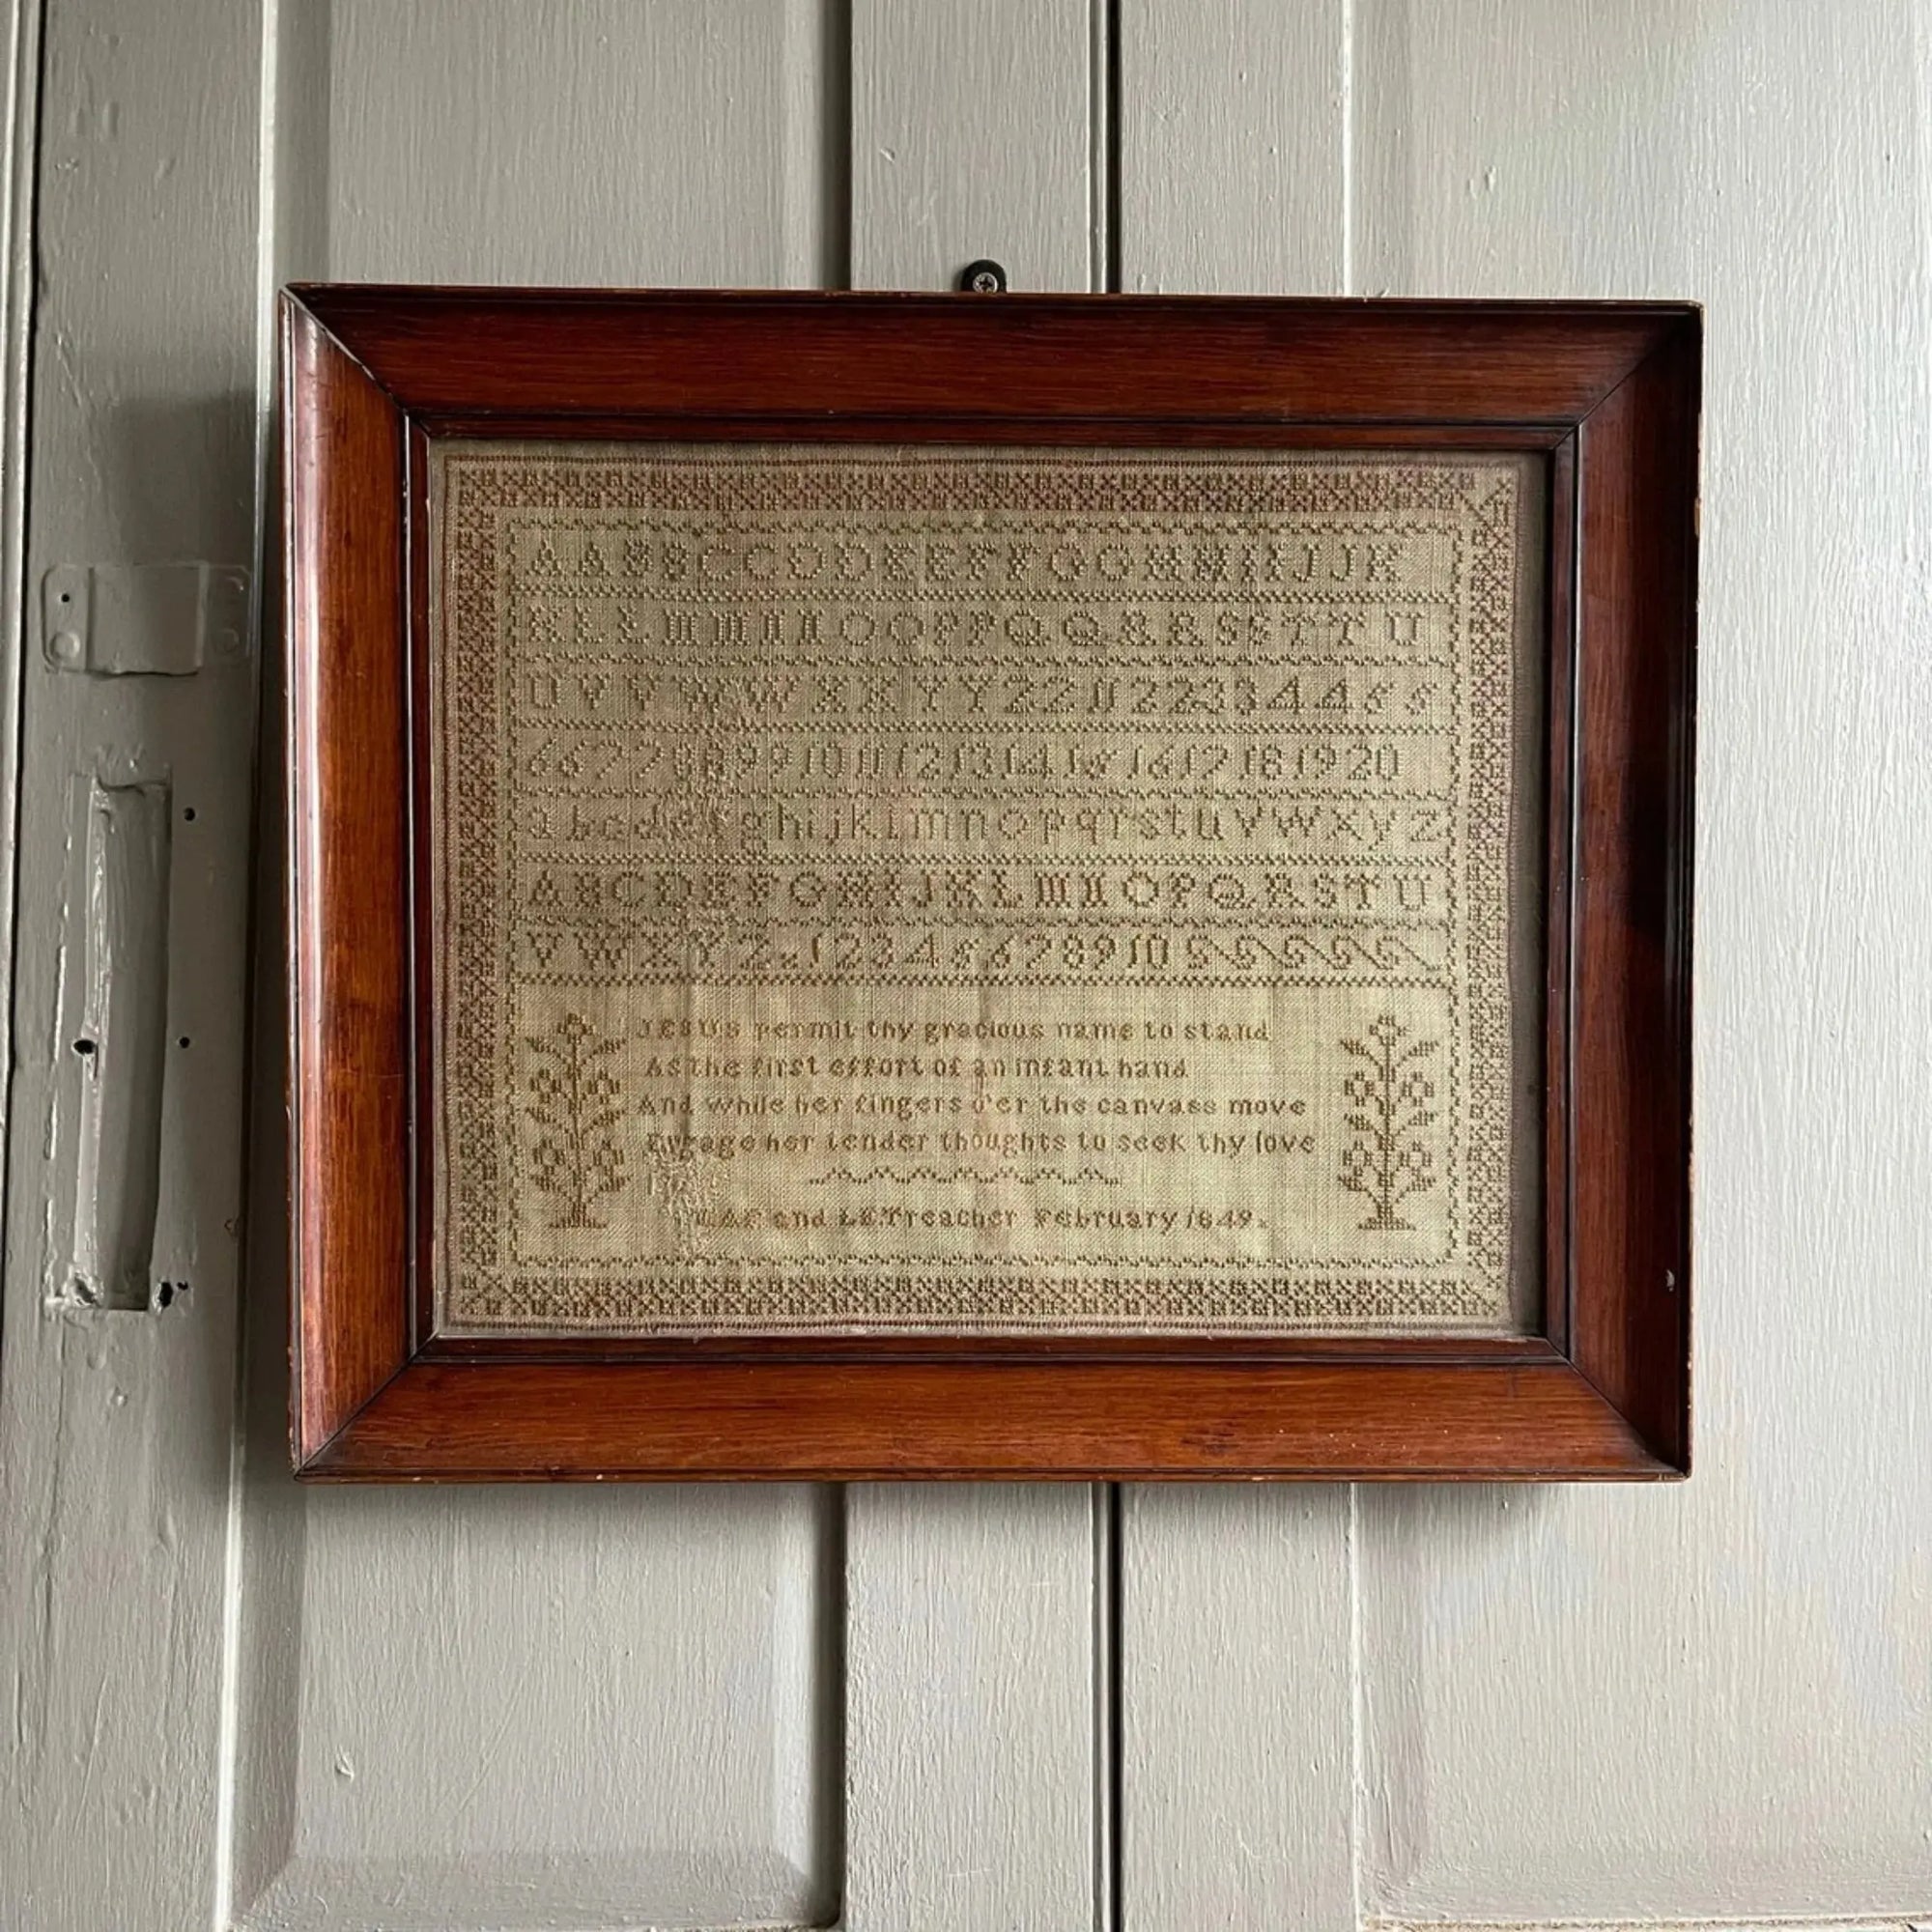 A A B B C C D D E E F F G G H H I I J J K
K L L M M N N O O P P Q Q R R S S T T U
U V V W W X X Y Y Z Z 1 1 2 2 3 3 4 4 5 5
6 6 7 7 8 8 9 9 10 11 12 13 14 15 16 17 18 19 20
a b c d e f g h i j k l m n o p q r s t u v w x y z
A B C D E F G H I J K L M N O P Q R S T U
V W X Y Z 1 2 3 4 5 6 7 8 9 10
JESUS permit thy gracious name to stand
As the first effort of an infant hand
And while her fingers o'er the canvass move
Engage her tender thoughts to seek thy love
and L.E.Treacher February 1849.